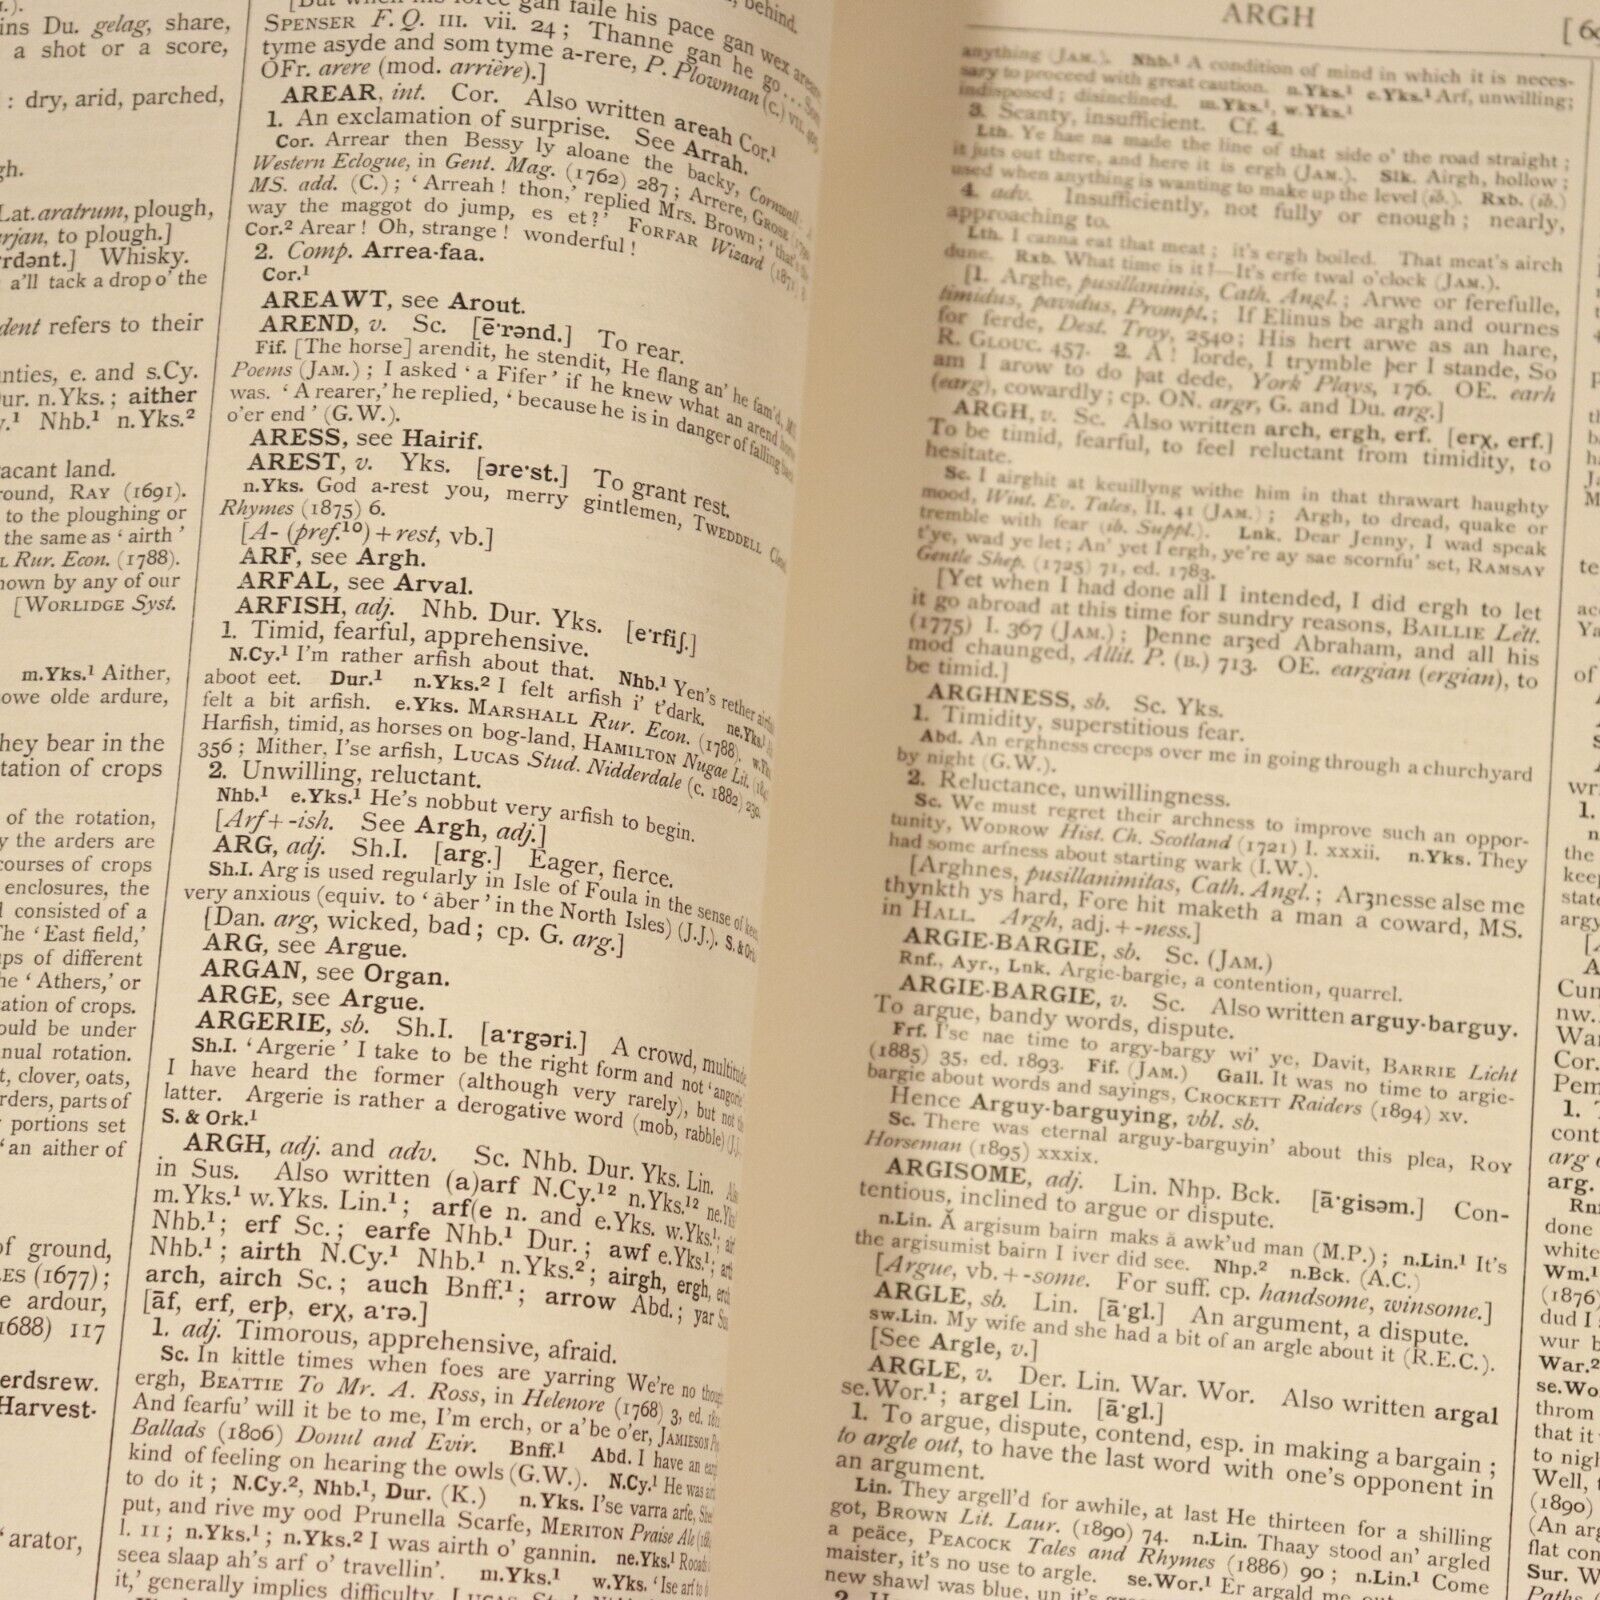 ins Du. gelag, share,
a shot or a score,
: dry, arid, parched,
gh.
Lat. aratrum, plough,
to plough.]
Whisky.
a'll tack a drop o' the
refers to their
e. and s.Cy.
n.Yks.; aither
Nhb.¹ n.Yks.²
land.
RAY (1691).
to the ploughing or
the same as ‘airth’
Rur. Econ. (1788).
by any of our
[WORLIDGE Syst.
m.Yks.¹ Aither,
olde ardure,
they bear in the
of crops
of the rotation,
the arders are
courses of crops
enclosures, the
consisted of a
The ‘East field,’
of different
‘Athers,’ or
of crops.
be under
rotation.
clover, oats,
parts of
portions set
‘an aither of
of ground,
(1677);
ardour,
1688) 117
Harvest-
‘arator,
gan faile his pace gan wex
SPENSER F. Q. III. vii. 24; Thanne gan he go...
tyme asyde and som tyme a-rere, P. Plowman (C.) VII.
OFr. arere (mod. arrière).]
AREAR, int. Cor. Also written areah Cor.¹
1. An exclamation of surprise. See Arrah.
Cor. Arrear then Bessy ly aloane the backy, Cornwall
Western Eclogue, in Gent. Mag. (1762) 287; Arrere, GROSE
MS. add. (C.); ‘Arreah! thon,’ replied Mrs. Brown;
way the maggot do jump, es et?’ FORFAR Wizard
Cor.² Arear! Oh, strange! wonderful!
2. Comp. Arrea-faa.
Cor.¹
AREAWT, see Arout.
AREND, v. Sc. [ē·rənd.] To rear.
Fif. [The horse] arendit, he stendit, He flang an' he fam'd,
Poems (JAM.); I asked ‘a Fifer’ if he knew what an arend
was. ‘A rearer,’ he replied, ‘because he is in danger of falling
o'er end’ (G.W.).
ARESS, see Hairif.
AREST, v. Yks. [əre·st.] To grant rest.
n.Yks. God a-rest you, merry gintlemen, TWEDDELL
Rhymes (1875) 6.
[A- (pref.¹⁰) + rest, vb.]
ARF, see Argh.
ARFAL, see Arval.
ARFISH, adj. Nhb. Dur. Yks. [e·rfiʃ.]
1. Timid, fearful, apprehensive.
N.Cy.¹ I'm rather arfish about that. Nhb.¹ Yen's rether
aboot eet. Dur.¹ n.Yks.² I felt arfish i' t'dark.
felt a bit arfish. e.Yks. MARSHALL Rur. Econ. (1788).
Harfish, timid, as horses on bog-land, HAMILTON Nugae Lit.
356; Mither, I'se arfish, LUCAS Stud. Nidderdale (c. 1882)
2. Unwilling, reluctant.
Nhb.¹ e.Yks.¹ He's nobbut very arfish to begin.
[Arf + -ish. See Argh, adj.]
ARG, adj. Sh.I. [arg.] Eager, fierce.
Sh.I. Arg is used regularly in Isle of Foula in the sense of
very anxious (equiv. to ‘āber’ in the North Isles) (J.J.).
[Dan. arg, wicked, bad; cp. G. arg.]
ARG, see Argue.
ARGAN, see Organ.
ARGE, see Argue.
ARGERIE, sb. Sh.I. [a·rgəri.] A crowd, multitude
Sh.I. ‘Argerie’ I take to be the right form and not
I have heard the former (although very rarely), but not
latter. Argerie is rather a derogative word (mob, rabble)
S. & Ork.¹
ARGH, adj. and adv. Sc. Nhb. Dur. Yks. Lin.
in Sus. Also written (a)arf N.Cy.¹² n.Yks.¹²
m.Yks.¹ w.Yks. Lin.¹; arf(e n. and e.Yks. w.Yks.¹;
Nhb.¹; erf Sc.; earfe Nhb.¹ Dur.; awf e.Yks.¹;
Nhb.¹; airth N.Cy.¹ Nhb.¹ n.Yks.²; airgh, ergh,
arch, airch Sc.; auch Bnff.¹; arrow Abd.; yar
[āf, erf, erþ, erχ, a·rə.]
1. adj. Timorous, apprehensive, afraid.
Sc. In kittle times when foes are yarring We're no
ergh, BEATTIE To Mr. A. Ross, in Helenore (1768) 3, ed.
And fearfu' will it be to me, I'm erch, or a' be o'er, JAMIESON
Ballads (1806) Donul and Evir. Bnff.¹ Abd. I have an
kind of feeling on hearing the owls (G.W.). N.Cy.¹ He was
to do it; N.Cy.², Nhb.¹, Dur. (K.) n.Yks. I'se varra arfe,
put, and rive my ood Prunella Scarfe, MERITON Praise Ale
l. 11; n.Yks.¹; n.Yks.² I was airth o' gannin. ne.Yks.¹
seea slaap ah's arf o' travellin'. m.Yks.¹ w.Yks. ‘Ise arf to
it,’ generally implies difficulty,
ARGH
anything (JAM.). Nhb.¹ A condition of mind in which it is neces-
sary to proceed with great caution. n.Yks.¹ e.Yks.¹ Arf, unwilling;
indisposed; disinclined. m.Yks.¹, w.Yks.¹
3. Scanty, insufficient. Cf. 4.
Lth. Ye hae na made the line of that side o' the road straight;
it juts out there, and here it is ergh (JAM.). Slk. Airgh, hollow;
used when anything is wanting to make up the level (ib.). Rxb. (ib.)
4. adv. Insufficiently, not fully or enough; nearly,
approaching to.
Lth. I canna eat that meat; it's ergh boiled. That meat's airch
dune. Rxb. What time is it?—It's erfe twal o'clock (JAM.).
[1. Arghe, pusillanimis, Cath. Angl.; Arwe or ferefulle,
timidus, pavidus, Prompt.; If Elinus be argh and ournes
for ferde, Dest. Troy, 2540; His hert arwe as an hare,
R. GLOUC. 457. 2. A! lorde, I trymble þer I stande, So
am I arow to do þat dede, York Plays, 176. OE. earh
(earg), cowardly; cp. ON. argr, G. and Du. arg.]
ARGH, v. Sc. Also written arch, ergh, erf. [erχ, erf.]
To be timid, fearful, to feel reluctant from timidity, to
hesitate.
Sc. I airghit at keuillyng withe him in that thrawart haughty
mood, Wint. Ev. Tales, II. 41 (JAM.); Argh, to dread, quake or
tremble with fear (ib. Suppl.). Lnk. Dear Jenny, I wad speak
t'ye, wad ye let; An' yet I ergh, ye're ay sae scornfu' set, RAMSAY
Gentle Shep. (1725) 71, ed. 1783.
[Yet when I had done all I intended, I did ergh to let
it go abroad at this time for sundry reasons, BAILLIE Lett.
(1775) I. 367 (JAM.); Þenne arȝed Abraham, and all his
mod chaunged, Allit. P. (B.) 713. OE. eargian (ergian), to
be timid.]
ARGHNESS, sb. Sc. Yks.
1. Timidity, superstitious fear.
Abd. An erghness creeps over me in going through a churchyard
by night (G.W.).
2. Reluctance, unwillingness.
Sc. We must regret their archness to improve such an oppor-
tunity, WODROW Hist. Ch. Scotland (1721) I. xxxii. n.Yks. They
had some arfness about starting wark (I.W.).
[Arghnes, pusillanimitas, Cath. Angl.; Arȝnesse alse me
thynkth ys hard, Fore hit maketh a man a coward, MS.
in HALL. Argh, adj. + -ness.]
ARGIE-BARGIE, sb. Sc. (JAM.)
Rnf., Ayr., Lnk. Argie-bargie, a contention, quarrel.
ARGIE-BARGIE, v. Sc. Also written arguy-barguy.
To argue, bandy words, dispute.
Frf. I'se nae time to argy-bargy wi' ye, Davit, BARRIE Licht
(1885) 35, ed. 1893. Fif. (JAM.) Gall. It was no time to argie-
bargie about words and sayings, CROCKETT Raiders (1894) xv.
Hence Arguy-barguying, vbl. sb.
Sc. There was eternal arguy-barguyin' about this plea, ROY
Horseman (1895) xxxix.
ARGISOME, adj. Lin. Nhp. Bck. [ā·gisəm.] Con-
tentious, inclined to argue or dispute.
n.Lin. Ǎ argisum bairn maks ā awk'ud man (M.P.); n.Lin.¹ It's
the argisumist bairn I iver did see. Nhp.² n.Bck. (A.C.)
[Argue, vb. + -some. For suff. cp. handsome, winsome.]
ARGLE, sb. Lin. [ā·gl.] An argument, a dispute.
sw.Lin. My wife and she had a bit of an argle about it (R.E.C.).
[See Argle, v.]
ARGLE, v. Der. Lin. War. Wor. Also written argal
se.Wor.¹; argel Lin. [ā·gl.]
1. To argue, dispute, contend, esp. in making a bargain;
to argle out, to have the last word with one's opponent in
an argument.
Lin. They argell'd for awhile, at last He thirteen for a shilling
got, BROWN Lit. Laur. (1890) 74. n.Lin. Thaay stood an' argled
a peäce, PEACOCK Tales and Rhymes (1886) 90; n.Lin.¹ Come
maister, it's no use to argle. se.Wor.¹ Er argald me
new shawl was blue,
te
of
1.
the
Cun
nw.
War
Cor.
Pem
1.
cont
arg
arg.
done
white
Wm.¹
(1876)
dud I
wur
War.²
se.Wo
throm
that it
to nigh
Well,
(1890)
(An arg
flat con
Sur. W
Paths